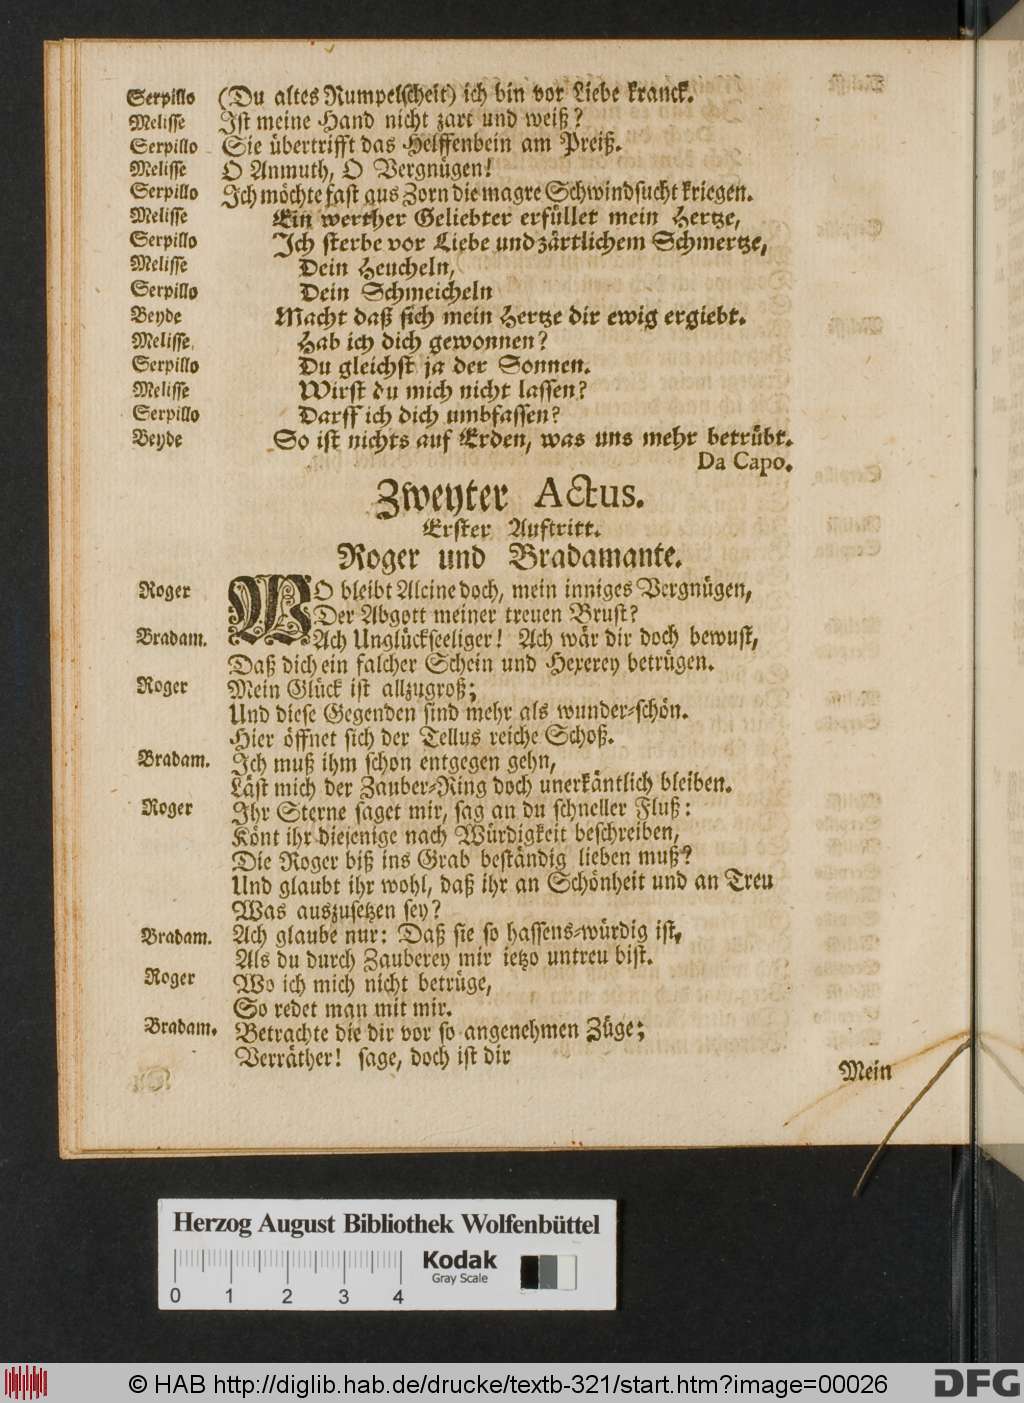 Serpillo (Du altes Rumpelscheit) ich bin vor Liebe kranck.
Melisse Ist meine Hand nicht zart und weiß?
Serpillo Sie übertrifft das Helffenbein am Preiß.
Melisse O Anmuth, O Vergnügen!
Serpillo Ich möchte fast aus Zorn die magre Schwindsucht kriegen.
Melisse Ein werther Geliebter erfüllet mein Hertze,
Serpillo Ich sterbe vor Liebe und zärtlichem Schmertze,
Melisse Dein Heucheln,
Serpillo Dein Schmeicheln
Beyde Macht daß sich mein Hertze dir ewig ergiebt.
Melisse. Hab ich dich gewonnen?
Serpillo Du gleichst ja der Sonnen.
Melisse Wirst du mich nicht lassen?
Serpillo Darff ich dich umbfassen?
Beyde So ist nichts auf Erden, was uns mehr betrübt.
Da Capo.
Zweyter Actus.
Erster Auftritt.
Roger und Bradamante.
Roger WO bleibt Alcine doch, mein inniges Vergnügen,
Der Abgott meiner treuen Brust?
Bradam. Ach Unglückseeliger! Ach wär dir doch bewust,
Daß dich ein falcher Schein und Hexerey betrügen.
Roger Mein Glück ist allzugroß;
Und diese Gegenden sind mehr als wunder-schön.
Hier öffnet sich der Tellus reiche Schoß.
Bradam. Ich muß ihm schon entgegen gehn,
Läst mich der Zauber-Ring doch unerkäntlich bleiben.
Roger Ihr Sterne saget mir, sag an du schneller Fluß:
Könt ihr diejenige nach Würdigkeit beschreiben,
Die Roger biß ins Grab beständig lieben muß?
Und glaubt ihr wohl, daß ihr an Schönheit und an Treu
Was auszusetzen sey?
Bradam. Ach glaube nur: Daß sie so hassens-würdig ist,
Als du durch Zauberey mir ietzo untreu bist.
Roger Wo ich mich nicht betrüge,
So redet man mit mir.
Bradam. Betrachte die dir vor so angenehmen Züge;
Verräther! sage, doch ist dir
Mein
Herzog August Bibliothek Wolfenbüttel
Kodak
Gray Scale
0 1 2 3 4
© HAB http://diglib.hab.de/drucke/textb-321/start.htm?image=00026
DFG